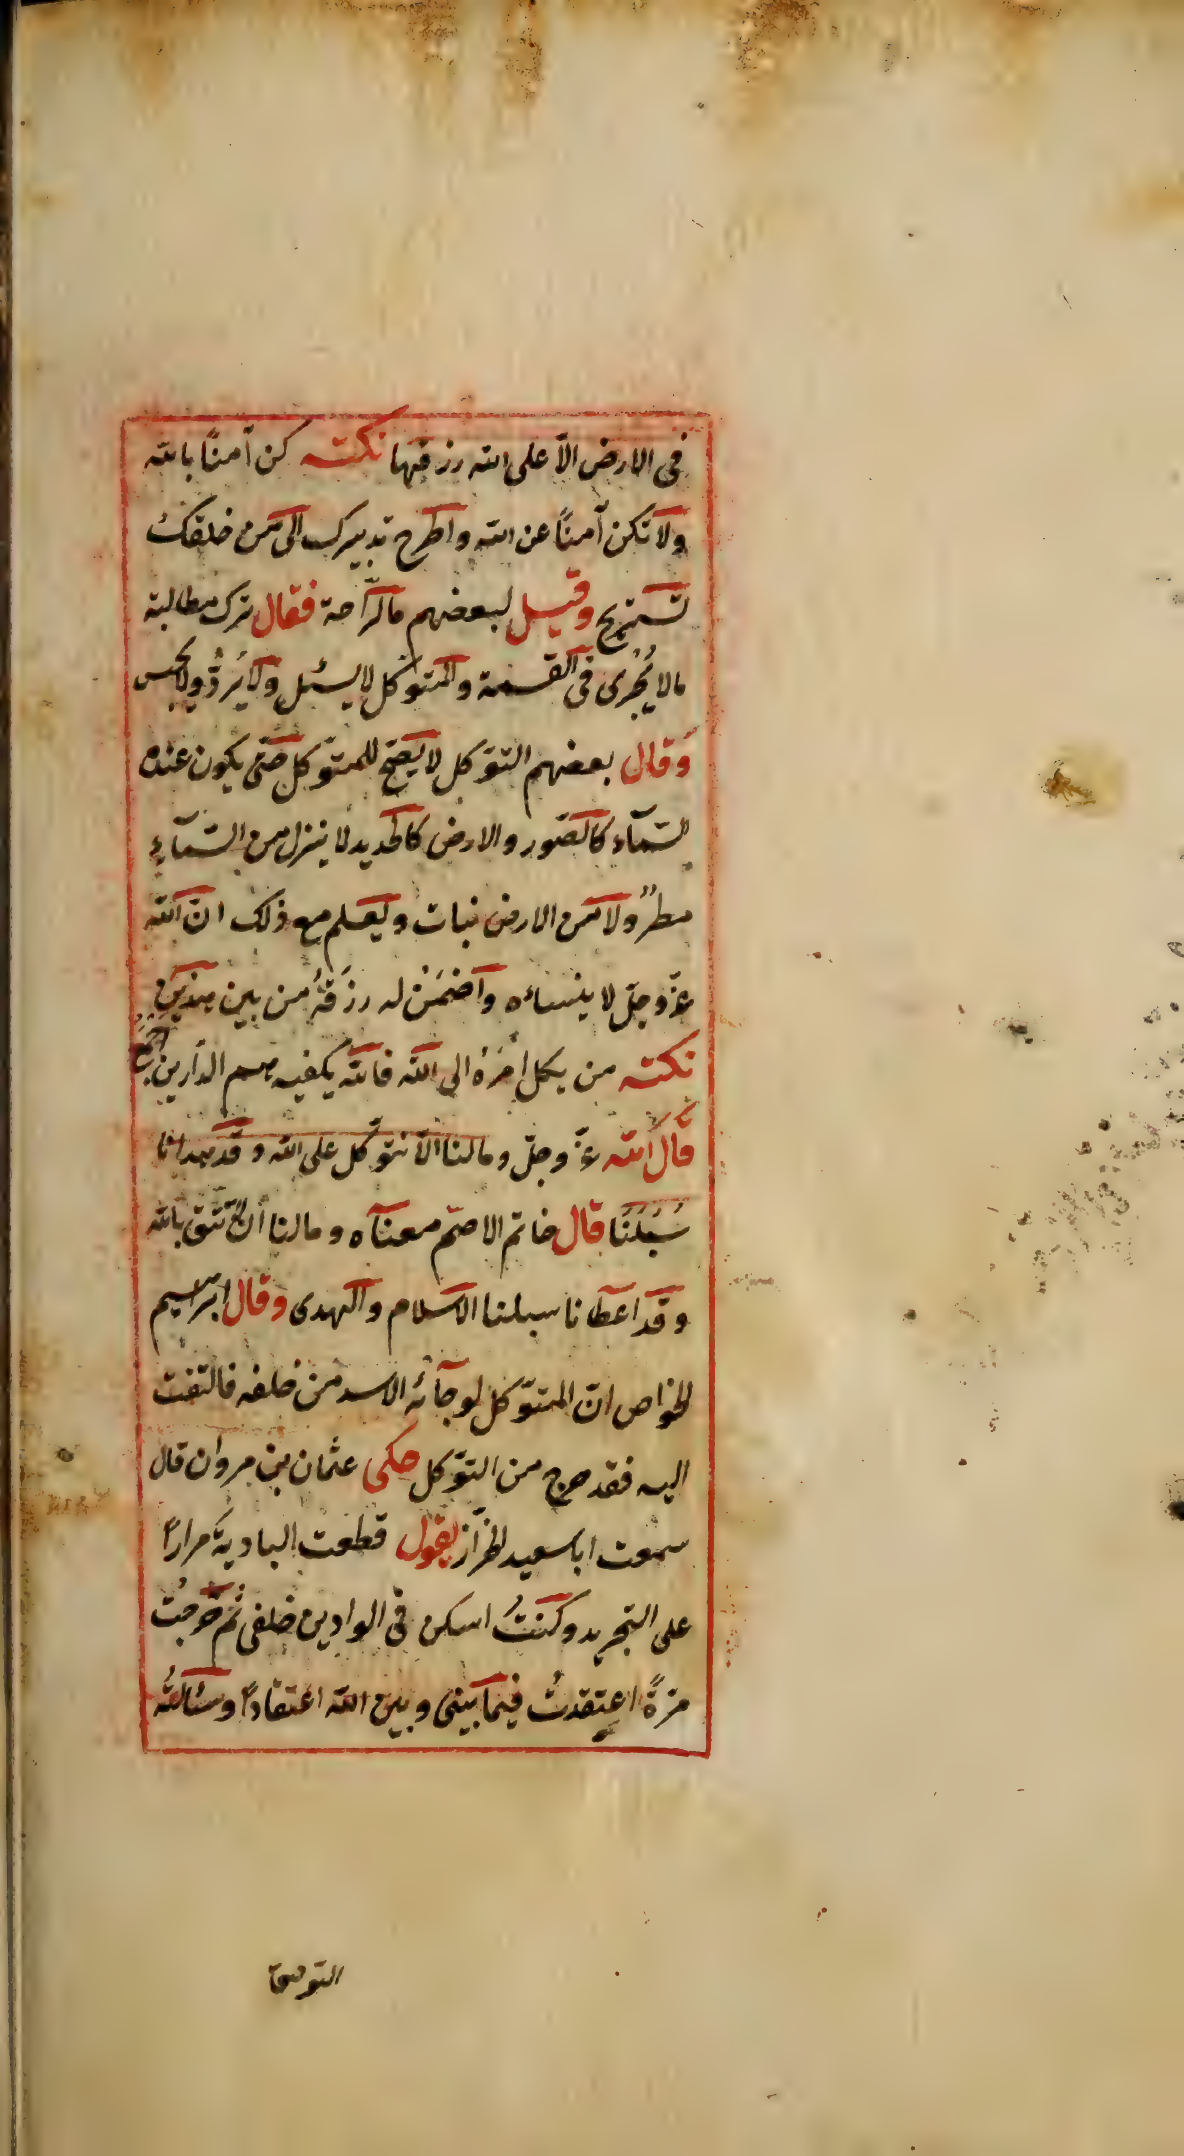 فى الارض الاّ على الله رزقها نكته كن آمنًا بالله
ولا تكن آمناً عن الله واطرح تدبيرك الى من خلقك
تستريح وقيل لبعضهم ما الرّاحة فقال ترك مطالبة
مالا يُجْرى فى القسمة والمتوكل لا يسئل ولا يَرُدُّ ولا يحبس
وَقال بعضهم التوّكل لا يصَحّ للمتوّكل حتّى يكون عنده
السّمآء كالصّور والارض كالحديد لا ينزل من السّمآءِ
مطرٌ ولا من الارض نبات ويعلم مع ذلك انّ الله
عزّ وجلّ لا ينساه واضمَنْ له رزقهُ من بين هذين
نكته من يكل أمْرَهُ الى الله فالله يكفيه مهم الدّارين اجمع
قَالَ الله عزّ وجلّ ومالنا الاّ نتوّكل على الله وقد هدانا
سُبُلَنَا قال خاتم الاصّم معناه ومالنا أن لا نثق بالله
وقد اعطانا سبلنا الاسلام والهدى وقال ابراهيم
الخوّاص انّ المتوّكل لو جآئهُ الاسد من خلفه فالتفت
اليه فقد خرج من التوّكل حكى عثمان بن مروان قال
سمعت ابا سعيد الخرّاز يقول قطعت الباديةَ مراراً
على التجريد وكنتُ اسكن فى الوادين خلفى ثمّ خرجت
مرّةً اعتقدتُ فيما بينى وبين الله اعتقاداً وسئالتُه